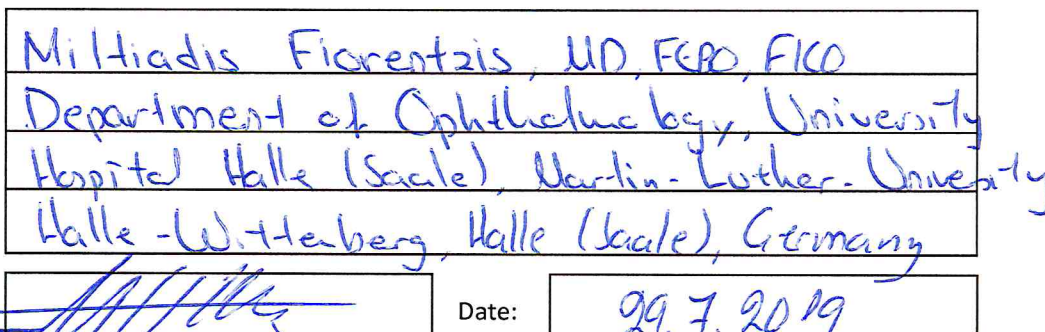 Miltiadis Fiorentzis, MD, FEBO, FICO
Department of Ophthalmology, University
Hospital Halle (Saale), Martin-Luther-University
Halle-Wittenberg, Halle (Saale), Germany
Date: 29.7.2019